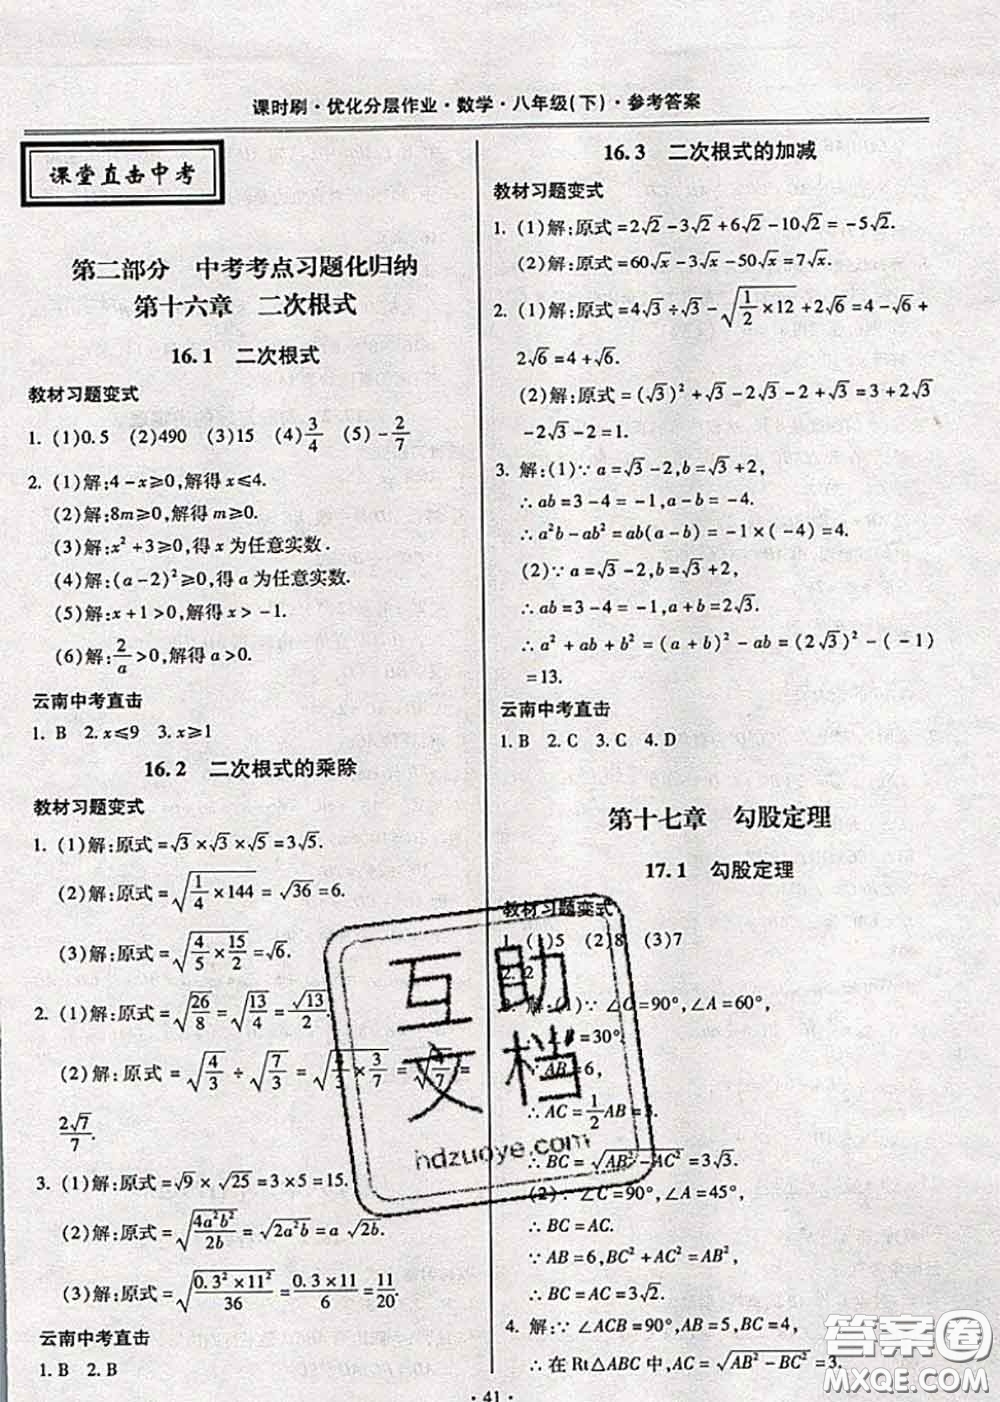 课时刷·优化分层作业·数学·八年级(下)·参考答案
课堂直击中考
第二部分 中考考点习题化归纳
第十六章 二次根式
16.1 二次根式
教材习题变式
1. (1)0.5 (2)490 (3)15 (4)3/4 (5)-2/7
2. (1)解:4-x≥0,解得x≤4.
(2)解:8m≥0,解得m≥0.
(3)解:x²+3≥0,得x为任意实数.
(4)解:(a-2)²≥0,得a为任意实数.
(5)解:x+1>0,解得x>-1.
(6)解:2/a>0,解得a>0.
云南中考直击
1. B 2. x≤9 3. x≥1
16.2 二次根式的乘除
教材习题变式
1. (1)解:原式=√3×√3×√5=3√5.
(2)解:原式=√(1/4×144)=√36=6.
(3)解:原式=√(4/5×15/2)=√6.
2. (1)解:原式=√(26/8)=√(13/4)=√13/2.
(2)解:原式=√(4/3)÷√(7/3)=√(4/3×3/7)=√(4/7)=
2√7/7.
3. (1)解:原式=√9×√25=3×5=15.
(2)解:原式=√(4a²b²/2b)=√(2a²b)=a√(2b).
(3)解:原式=√(0.3²×11²/36)=0.3×11/6=11/20.
云南中考直击
1. B 2. B
16.3 二次根式的加减
教材习题变式
1. (1)解:原式=2√2-3√2+6√2-10√2=-5√2.
(2)解:原式=60√x-3√x-50√x=7√x.
2. (1)解:原式=4√3÷√3-√(1/2×12)+2√6=4-√6+
2√6=4+√6.
(2)解:原式=(√3)²+√3-2√3-2+√3=3+2√3
-2√3-2=1.
3. 解:(1)∵a=√3-2,b=√3+2,
∴ab=3-4=-1,a-b=-4.
∴a²b-ab²=ab(a-b)=-1×(-4)=4.
(2)∵a=√3-2,b=√3+2,
∴ab=3-4=-1,a+b=2√3.
∴a²+ab+b²=(a+b)²-ab=(2√3)²-(-1)
=13.
云南中考直击
1. B 2. C 3. C 4. D
第十七章 勾股定理
17.1 勾股定理
教材习题变式
1. (1)5 (2)8 (3)7
2. 2
解:(1)∵∠C=90°,∠A=60°,
=30°.
∵AB=6,
∴AC=1/2AB=3.
∴BC=√(AB²-AC²)=3√3.
(2)∵∠C=90°,∠A=45°,
∴BC=AC.
∵AB=6,BC²+AC²=AB²,
∴BC=AC=3√2.
4. 解:∵∠ACB=90°,AB=5,BC=4,
∴在Rt△ABC中,AC=√(AB²-BC²)=3.
·41·
互助
文档
hdzuoye.com
答案圈
MXQE.COM